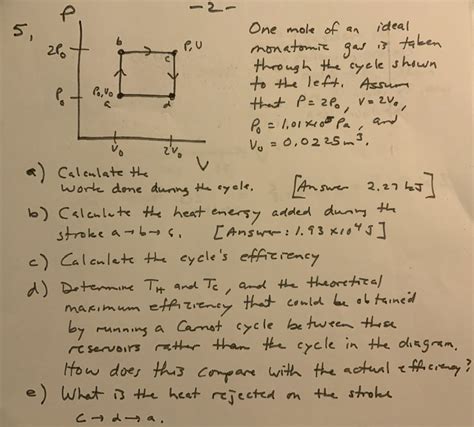 -2-
5,
P
2P₀
P₀
b
c
P, V
P₀, V₀
a
d
V₀
2V₀
V
One mole of an ideal
monatomic gas is taken
through the cycle shown
to the left. Assum
that P = 2P₀, V = 2V₀,
P₀ = 1.01 x 10⁵ Pa, and
V₀ = 0.0225 m³.
a) Calculate the
work done during the cycle. [Answer 2.27 kJ]
b) Calculate the heat energy added during the
stroke a → b → c. [Answer: 1.93 x 10⁴ J]
c) Calculate the cycle's efficiency
d) Determine T_H and T_C, and the theoretical
maximum efficiency that could be obtained
by running a Carnot cycle between these
reservoirs rather than the cycle in the diagram.
How does this compare with the actual efficiency?
e) What is the heat rejected on the stroke
c → d → a.